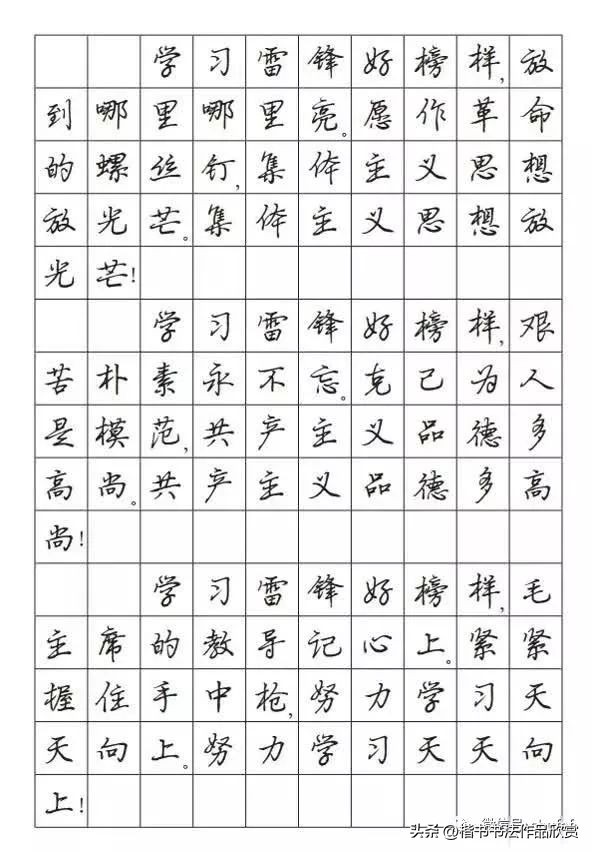 学习雷锋好榜样,放
到哪里哪里亮。愿作革命
的螺丝钉,集体主义思想
放光芒。集体主义思想放
光芒!
学习雷锋好榜样,艰
苦朴素永不忘。克己为人
是模范,共产主义品德多
高尚。共产主义品德多高
尚!
学习雷锋好榜样,毛
主席的教导记心上。紧紧
握住手中枪,努力学习天
天向上。努力学习天天向
上!
微信号:
头条@楷书书法作品欣赏